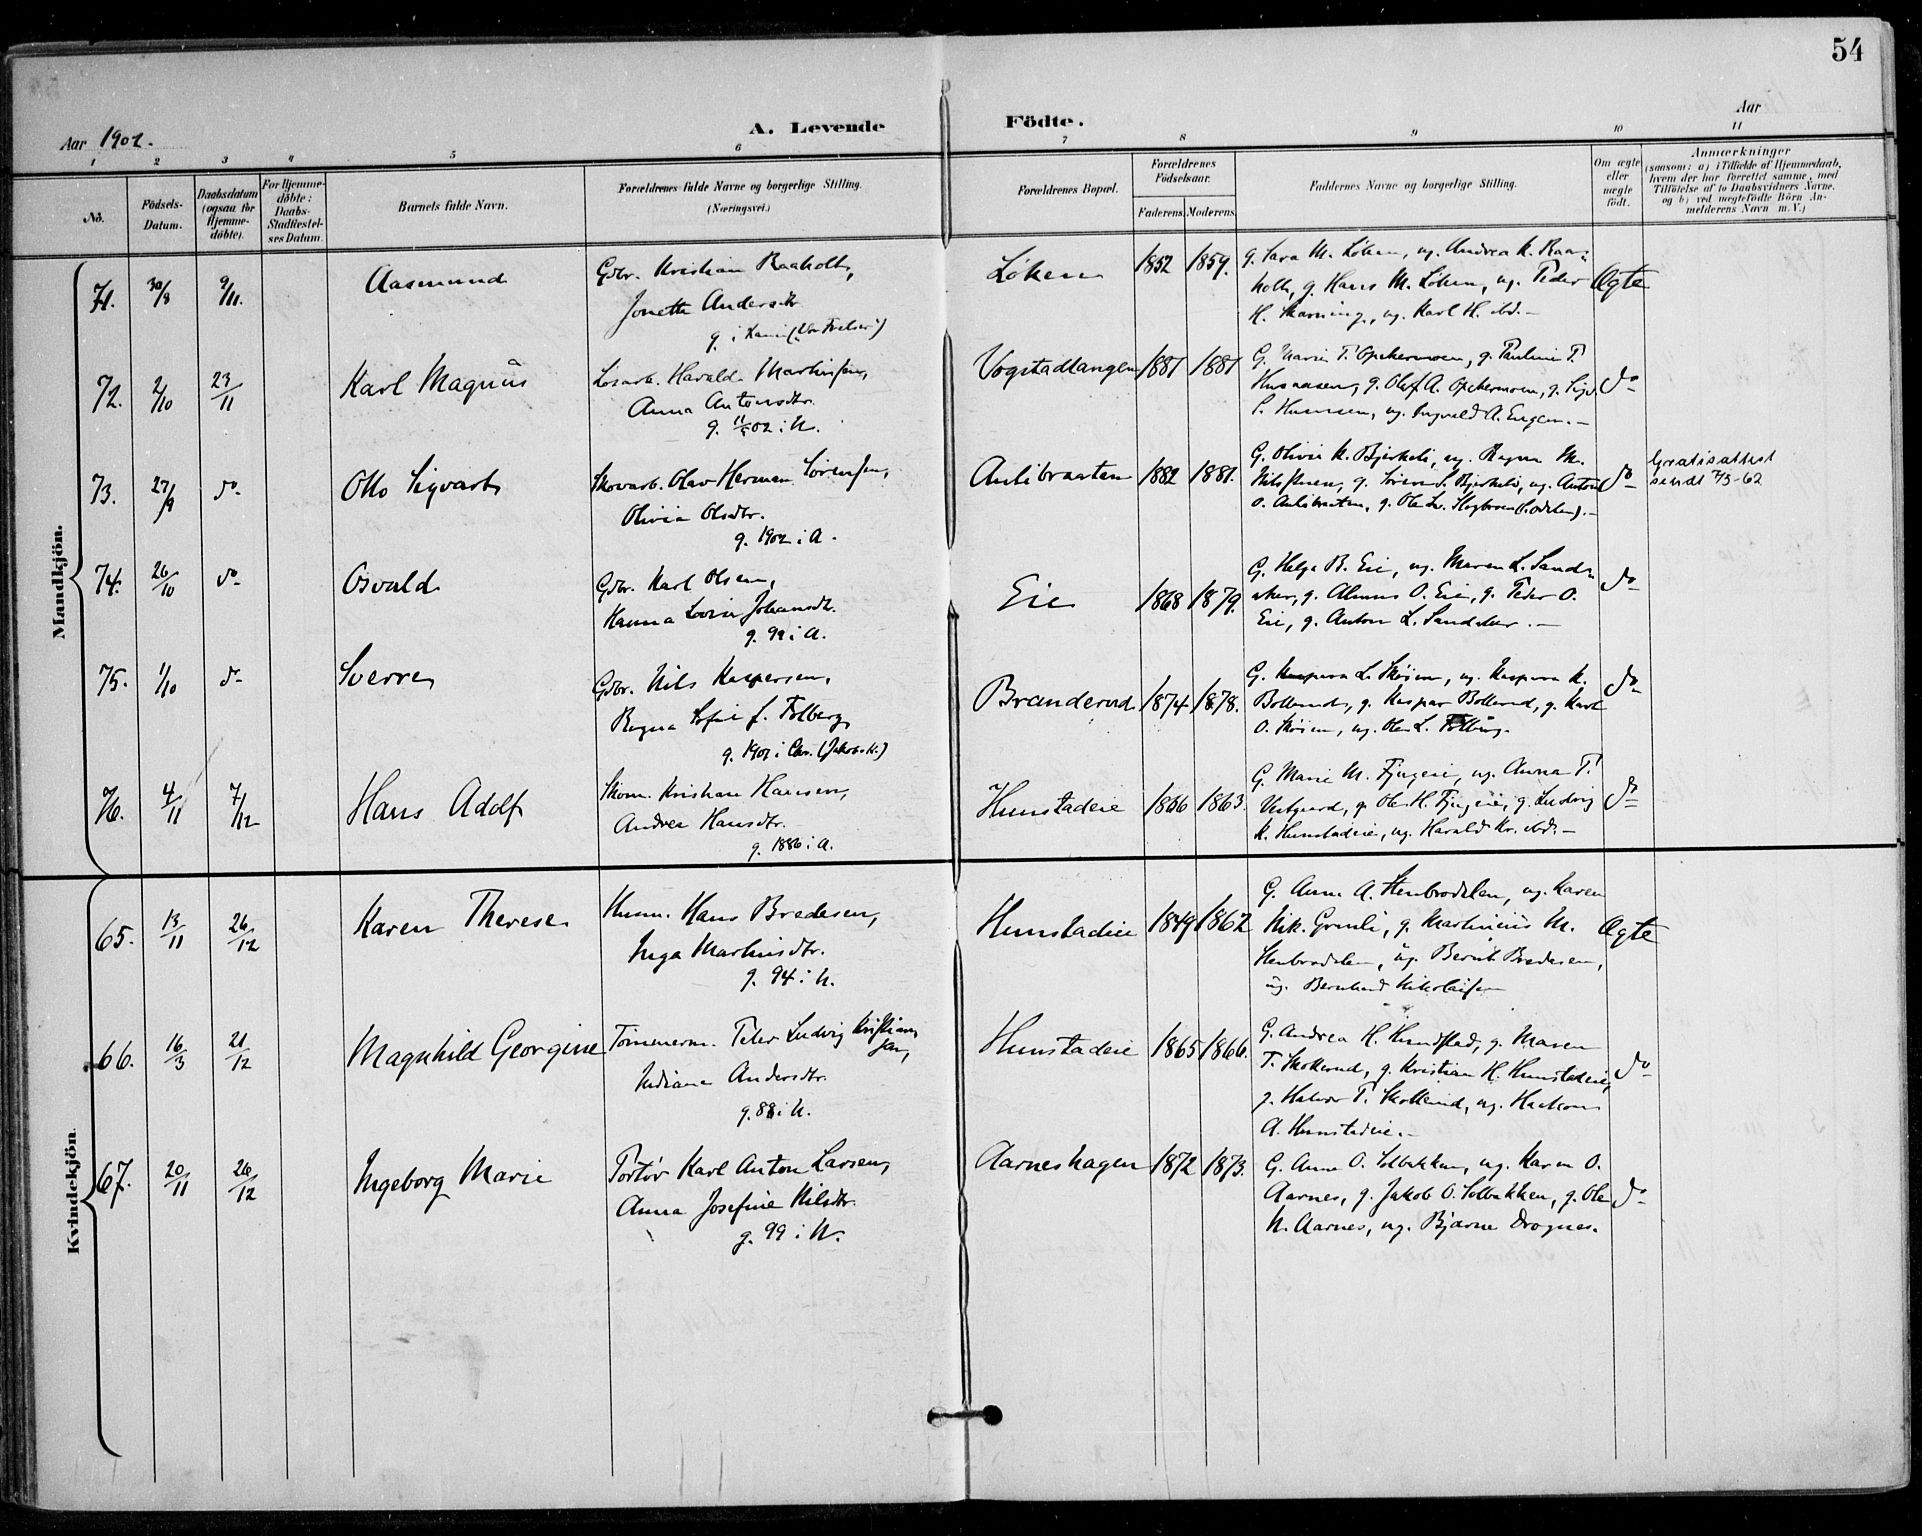 54
Aar 1902.
A. Levende Födte.
Aar
1 2 3 4 5 6 7 8 9 10 11
No.
Födsels-Datum.
Daabsdatum (ogsaa for Hjemme-döbte).
For Hjemme-döbte: Daabs-Stadfæstel-ses Datum.
Barnets fulde Navn.
Forældrenes fulde Navne og borgerlige Stilling. (Næringsvei.)
Forældrenes Bopæl.
Forældrenes Födselsaar.
Faderens. Moderens.
Faddernes Navne og borgerlige Stilling.
Om ægte eller uægte født.
Anmærkninger
(saasom: a) i Tilfælde af Hjemmedaab, hvem der har forrettet samme, med Tilföielse af to Daabsvidners Navne, og b) ved uægtefödte Börn An-melderens Navn m. V.)
Mandkjön.
71. 30/8 9/11. Aasmund
Gdbr. Kristian Raaholt,
Jonetta Andersdtr.
Løken 1852 1859.
g. Sara M. Løken, ug. Andrea K. Raa-
holt, g. Hans M. Løken, ug. Peder
H. Skarning, ug. Karl H. ibd.-
Ægte
72. 2/10 23/11 Karl Magnus
Losarb. Harald Martinsen,
Anna Antonsdtr.
g. 11/5 02 i N.
Vogstadtangen 1881 1881
G. Marie T. Opakermoen, g. Pauline T.
g. Olaf A. Opakermoen,
ug. Ingvald A. Engen.-
do
73. 27/9 do Otto Sigvart
Skovarb. Olav Herman Sørensen,
Olivia Olsdtr.
g. 1902 i A.
Aulibraaten 1882 1881.
G. Olivie K. Bjerkeli, ug. Ragna M.
Nilssen, g. Søren S. Bjerkeli, ug. Anton
O. Aulibraaten, g. Ole
do
Gratisattest
sendt 7/3-62
74. 26/10 do Osvald
Gdbr. Karl Olsen,
Hanna Lovise Johansdtr.
g. 99 i A.
Eie 1868 1879.
G. Helga B. Eie, ug. Maren L. Sand-
aker, g. O. Eie, g. Peder O.
Eie, g. Anton L. Sandaker.-
do
75. 1/10 do Sverre
Gdbr. Nils Kaspersen,
Ragna Sofie f. Folberg,
g. 1901 i Chr. (Jakobs K.)
Branderud 1874 1878.
G. Kaspara L. Skøien, ug. Kaspara K.
Bollerud, g. Kaspar Bollerud, g. Karl
O. Skøien, ug. Ole L.
do
76. 4/11 7/12 Hans Adolf
Skom. Kristian Hansen,
Andrea Hansdtr.
g. 1886 i A.
Hunstadeie 1866 1863.
G. Marie M. ug. Anna T.
g. Ole H. g. Ludvig
K. Hunstadeie, ug. Harald Kr. ibd.-
do
Kvindekjön.
65. 13/11 26/12 Karen Therese
Husm. Hans Bredesen,
Inga Martinsdtr.
g. 94 i N.
Hunstadeie 1849 1862
G. Anne A. Stenbrodalen, ug. Karen
Nik. Grimli, g. Martinius M.
Stenbrodalen, ug. Bernt Bredesen,
ug. Bernhard Nikolaisen
Ægte
66. 16/3 21/12 Magnhild Georgine
Tömmerm. Peter Ludvig Kristian-
sen,
Indiana Andersdtr.
g. 88 i N.
Hunstadeie 1865 1866.
G. Andrea H. Hunstad, g. Maren
T. Skollerud, g. Kristian H. Hunstadeie,
g. Halvor T. Skollerud, ug. Haakon
A. Hunstadeie.-
do
67. 20/11 26/12 Ingeborg Marie
Portør Karl Anton Larsen,
Anna Josefine Nilsdtr.
g. 99 i N.
Aarneshagen 1872 1873.
G. Anne O. Solbakken, ug. Karen O.
Aarnes, g. Jakob O. Solbakken, g. Ole
N. Aarnes, ug. Bjarne Drognes.
do